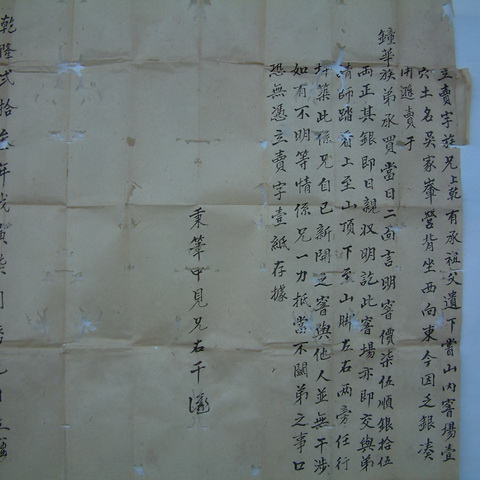 立賣字族兄上乾有承祖父遺下嘗山內窨場壹
穴土名吳家輋營背坐西向東今因乏銀凑
用遜賣于
鐘華族弟承買當日二面言明窨價柒伍順銀拾伍
両正其銀即日親収明訖此窨場亦即交與弟
請師踏看上至山頂下至山脚左右両旁任行
扦築此係兄自己新開之窨與他人並無干涉
如有不明等情係兄一力抵當不關弟之事口
恐無憑立賣字壹紙存據
秉筆中見兄右千
乾隆弍拾叁年戊寅歲